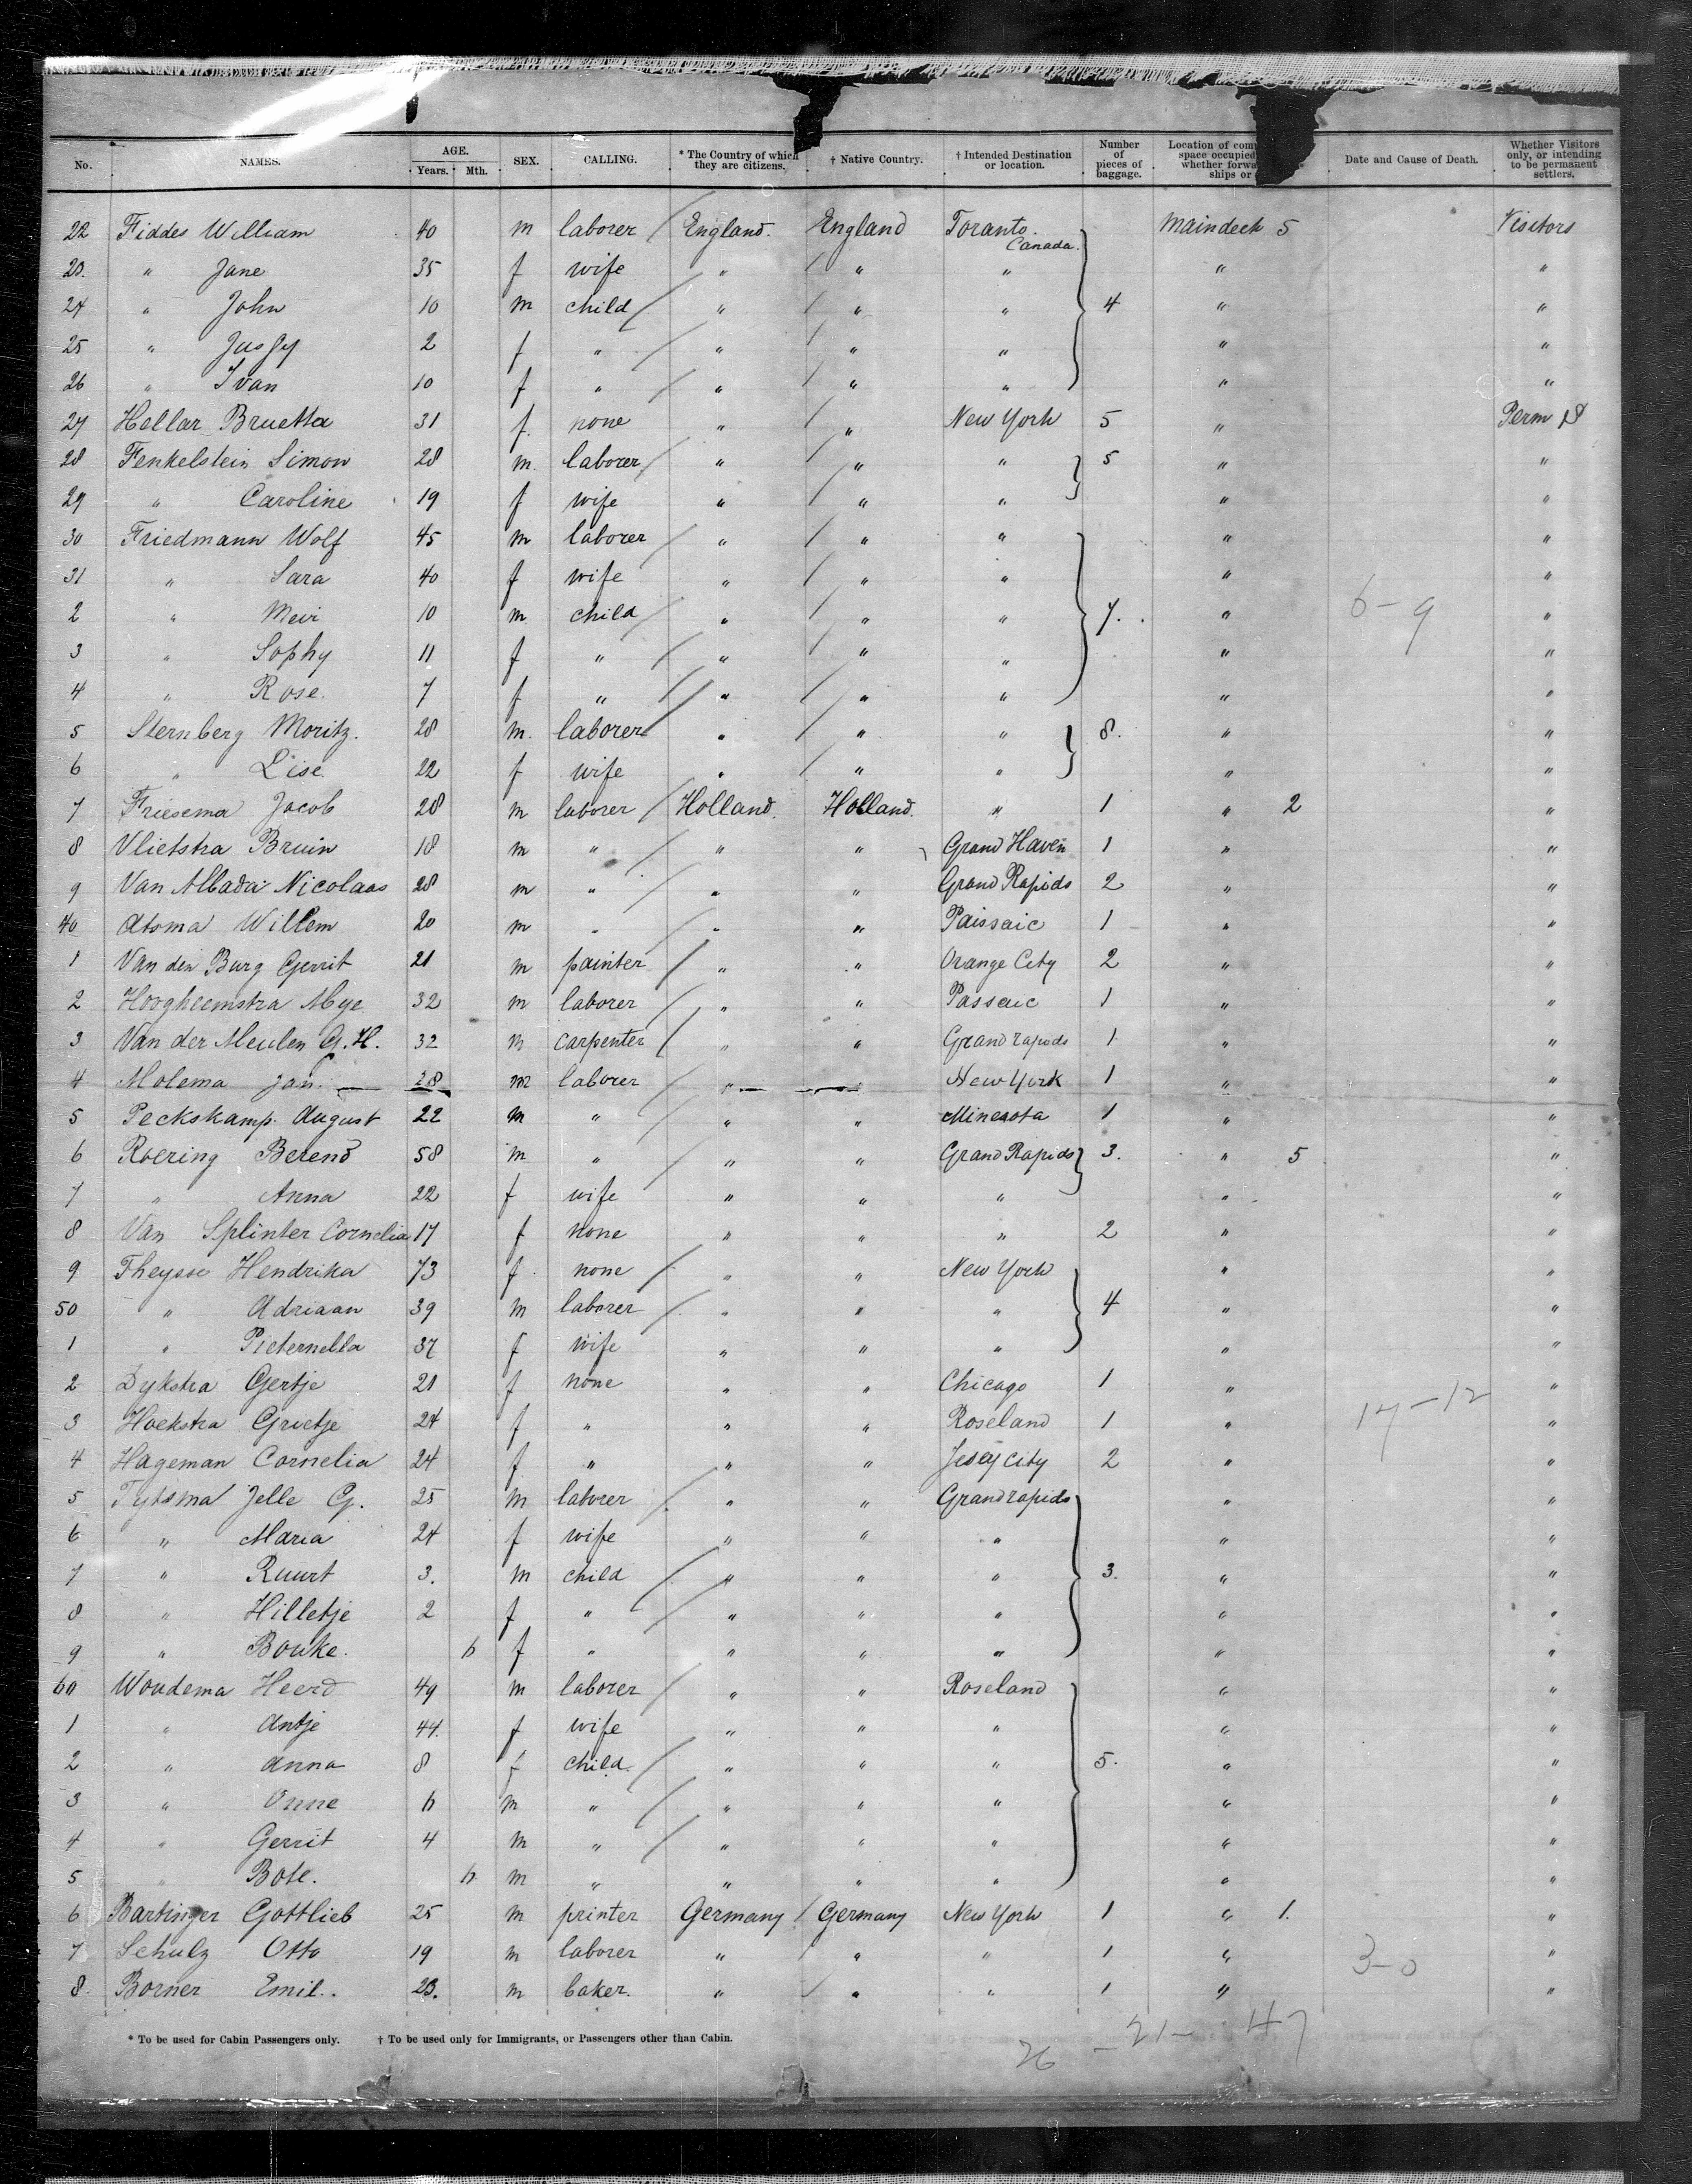 No. NAMES. AGE. Years. Mth. SEX. CALLING. * The Country of which they are citizens. † Native Country. † Intended Destination or location. Number of pieces of baggage. Location of com space occupied whether forwa ships or Date and Cause of Death. Whether Visitors only, or intending to be permanent settlers.
22 Fiddes William 40 m laborer / England. England Toranto. Canada. Maindeck 5 Visitors
23. " Jane 35 f wife " / " " " "
24 " John 10 m child / " / " " 4 " "
25 " 2 f " / " / " " " "
26 " Ivan 10 f " / " / " " " "
27 Hellar Bruetta 31 f. none " / " New York 5 " Perm
28 Fenkelstein Simon 28 m. laborer / " / " " 5 " "
29 " Caroline 19 f wife " / " " " "
30 Friedmann Wolf 45 m laborer / " / " " " "
31 " Sara 40 f wife " / " " " "
2 " Meir 10 m child / " / " " 7. " 6-9 "
3 " Sophy 11 f " / " / " " " "
4 " Rose. 7 f " / " / " " " "
5 Sternberg Moritz. 28 m. laborer / " / " " 8. " "
6 " Lise 22 f wife " / " " " "
7 Friesema Jacob 28 m laborer / Holland. Holland. " 1 " 2 "
8 Vlietstra Bruin 18 m " / " " Grand Haven 1 " "
9 Van Albada Nicolaas 28 m " / " " Grand Rapids 2 " "
40 Atsma Willem 20 m " / " " Paissaic 1 " "
1 Van den Burg Gerrit 21 m painter / " " Orange City 2 " "
2 Hoogheemstra Mye 32 m laborer / " " Passaic 1 " "
3 Van der Meulen G. H. 32 m carpenter / " " Grand rapids 1 " "
4 Molema Jan. 28 m laborer " New York 1 " "
5 Peckskamp. August 22 m " / " " Minesota 1 " "
6 Roering Berend 58 m " / " " Grand Rapids 3. " 5 "
7 " Anna 22 f wife " " " " "
8 Van Splinter Cornelia 17 f none " " " 2 " "
9 Theysse Hendrika 73 f none / " " New York " "
50 " Adriaan 39 m laborer / " " " 4 " "
1 " Pieternella 37 f wife " " " " "
2 Dykstra Gertje 21 f none " " Chicago 1 " "
3 Hoekstra Grietje 24 f " " " Roseland 1 " 14-12 "
4 Hageman Cornelia 24 f " " " Jesey City 2 " "
5 Tytsma Jelle G. 25 m laborer / " " Grand rapids " "
6 " Maria 24 f wife " " " " "
7 " Ruurt 3. m child / " " " 3. " "
8 " Hilletje 2 f " / " " " " "
9 " Bouke. 6 f " " " " " "
60 Woudema Heerd 49 m laborer / " " Roseland " "
1 " Antje 44. f wife " " " " "
2 " Anna 8 f child. / " " " 5. " "
3 " Onne 6 m " / " " " " "
4 " Gerrit 4 m " / " " " " "
5 " Bote. 6 m " " " " " "
6 Bartinger Gottlieb 25 m printer Germany / Germany New York 1 " 1. "
7 Schulz Otto 19 m laborer " " " 1 " 3-0 "
8. Borner Emil.. 23. m baker. " / " " 1 " "
* To be used for Cabin Passengers only. † To be used only for Immigrants, or Passengers other than Cabin.
26 - 21 - 47